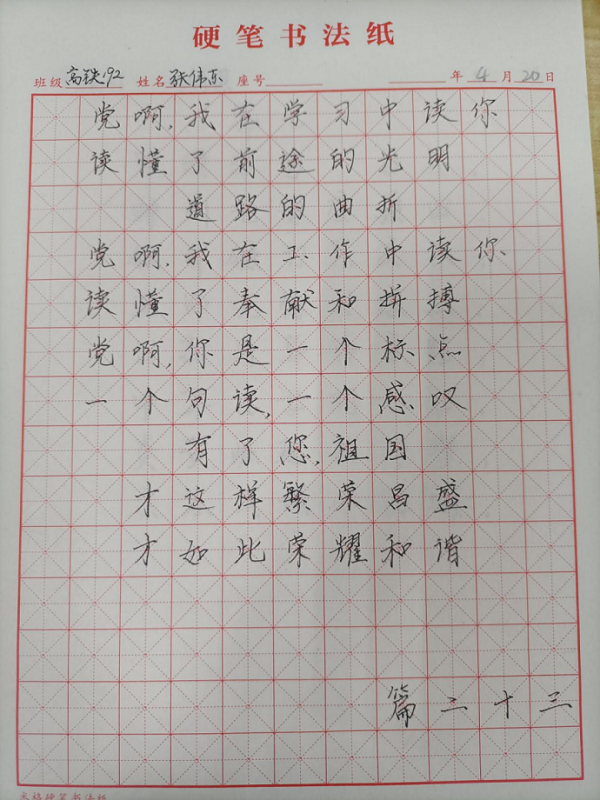 硬笔书法纸
班级 高铁192 姓名 张伟东 座号 年 4 月 20 日
党啊,我在学习中读你
读懂了前途的光明
道路的曲折
党啊,我在工作中读你、
读懂了奉献和拼搏
党啊,你是一个标点
一个句读,一个感叹
有了您,祖国
才这样繁荣昌盛
才如此荣耀和谐
篇二十三
米格硬笔书法纸